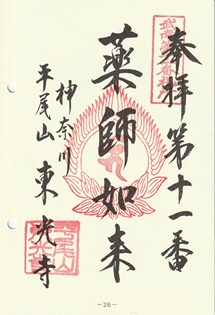 奉拝 第十一番
薬師如来
神奈川
平尾山 東光寺
-26-